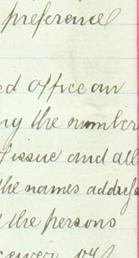 preference
ed office an
ng the number
f issue and all
the names address
d the persons